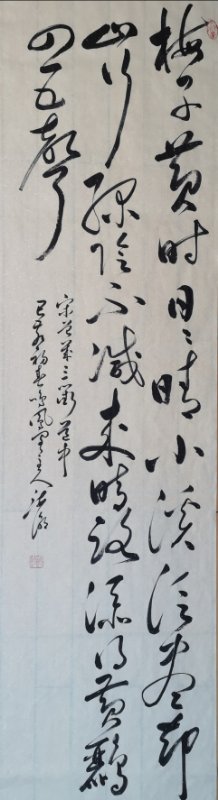 梅子黄时日日晴小溪泛尽却
山行绿阴不减来時路添得黄鸝
四五声
宋曾几三衢道中
己亥初春鸣凤主人